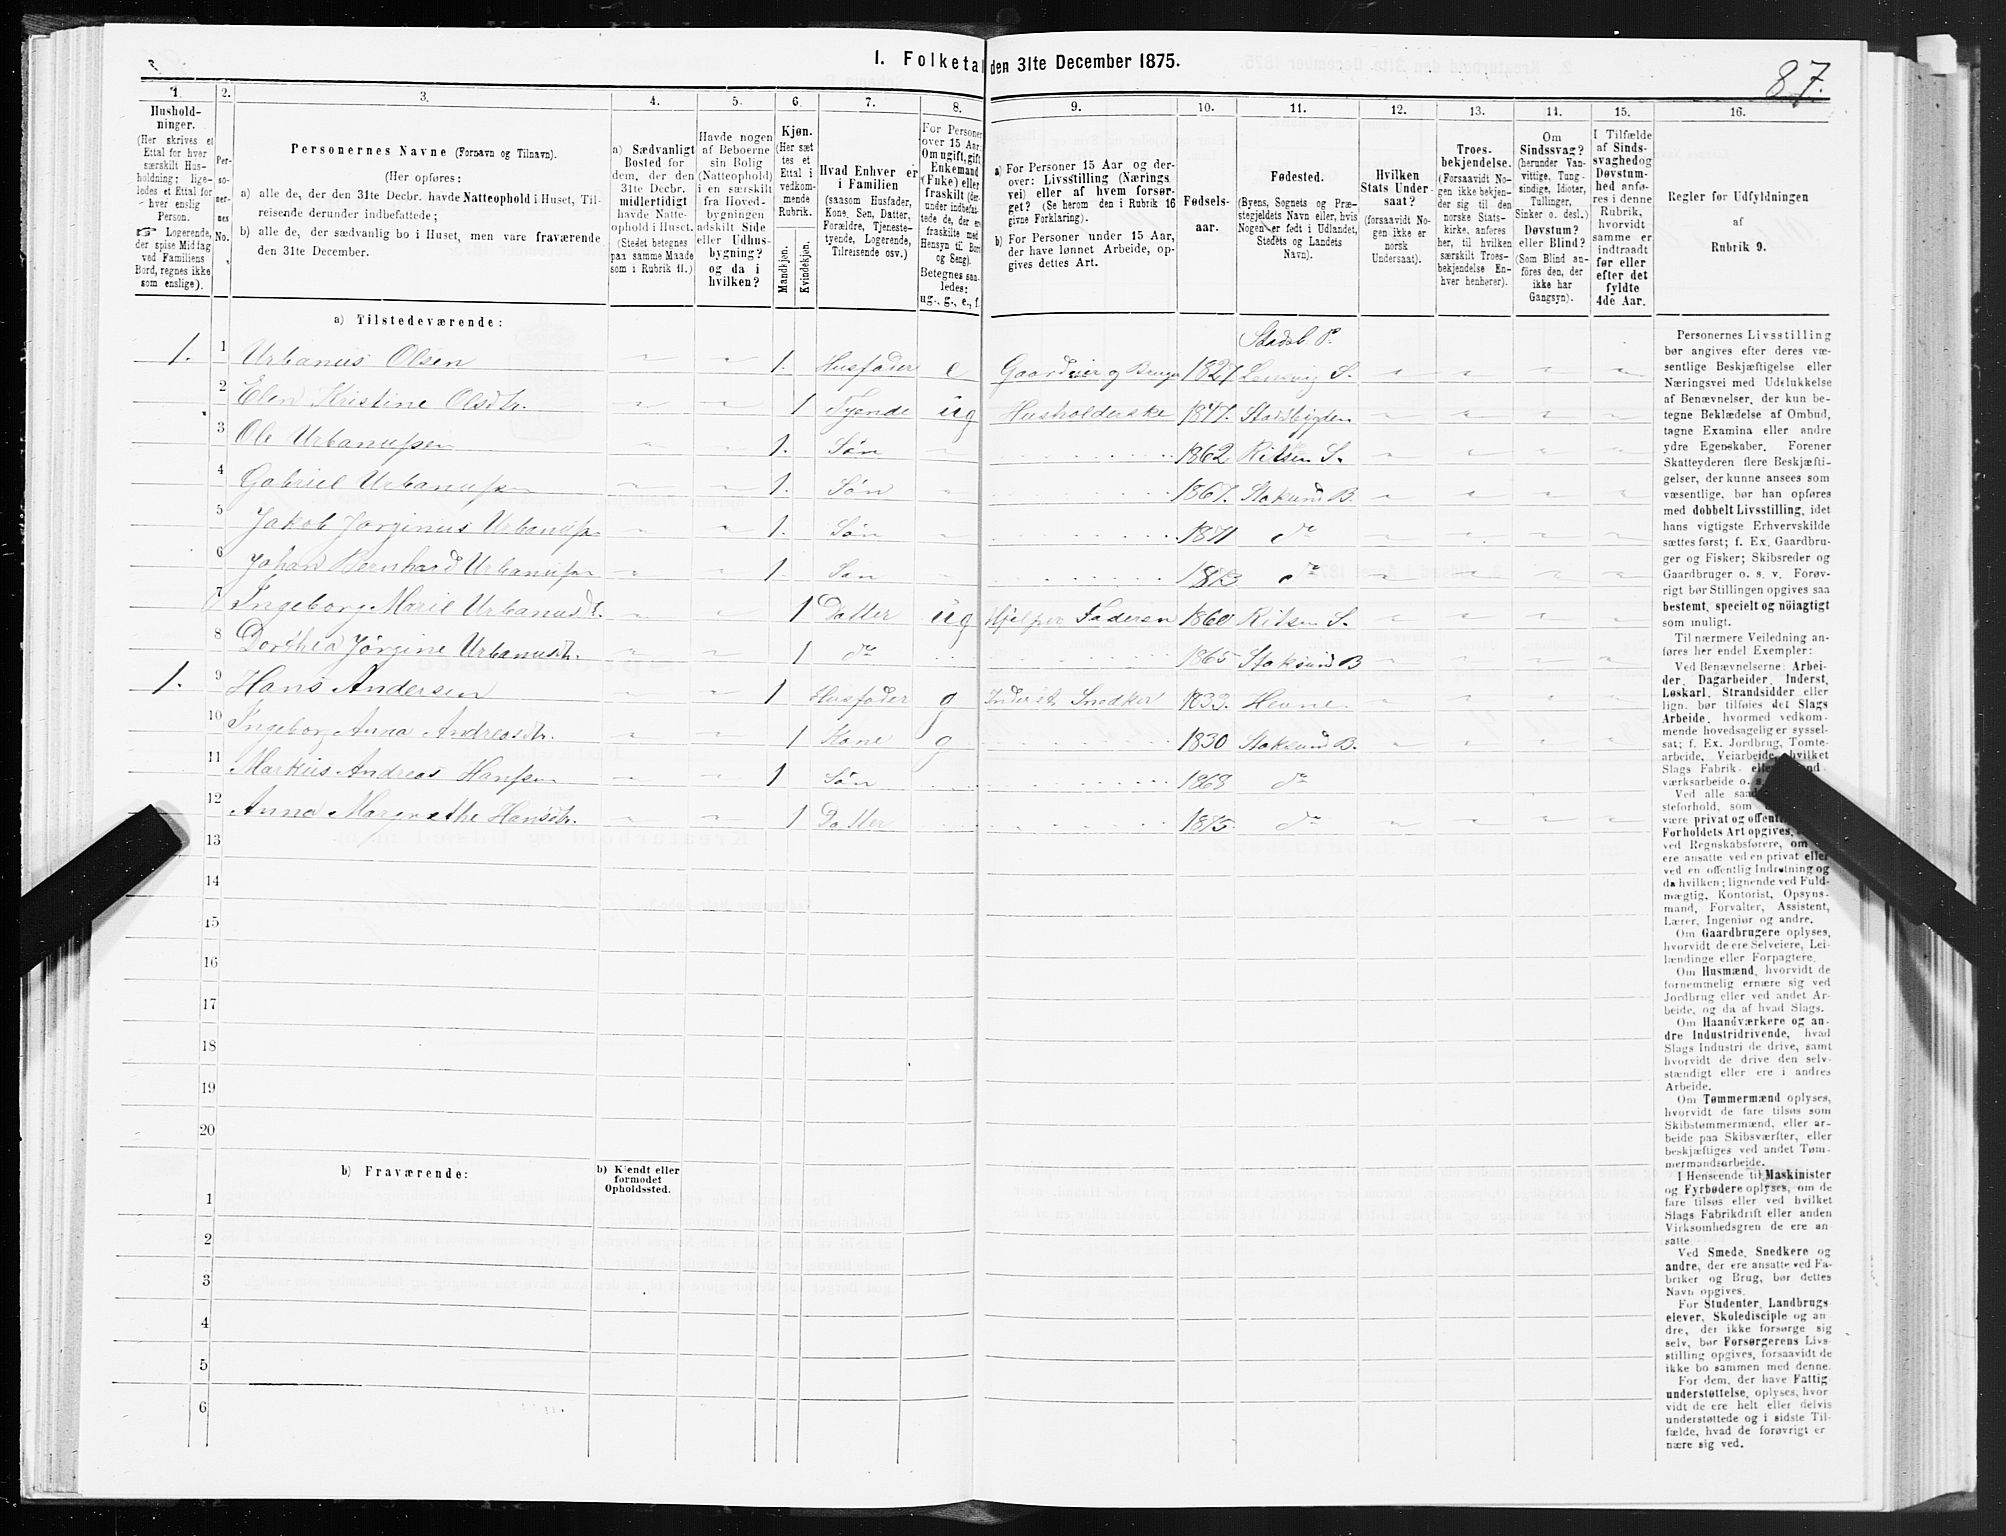 I. Folketal den 31te December 1875.
87.
1.
2.
3.
4.
5.
6.
7.
8.
9.
10.
11.
12.
13.
14.
15.
16.
Hushold-
ninger.
(Her skrives et
Ettal for hver
særskilt Hus-
holdning; lige-
ledes et Ettal for
hver enslig
Person.
Logerende,
der spise Middag
ved Familiens
Bord, regnes ikke
som enslige).
Per-
so-
ner-
nes
No.
Personernes Navne (Fornavn og Tilnavn).
(Her opføres:
a) alle de, der den 31te Decbr. havde Natteophold i Huset, Til-
reisende derunder indbefattede;
b) alle de, der sædvanlig bo i Huset, men vare fraværende
den 31te December.
a) Sædvanligt
Bosted for
dem, der den
31te Decbr.
midlertidigt
havde Natte-
ophold i Huset.
(Stedet betegnes
paa samme Maade
som i Rubrik 11.)
Havde nogen
af Beboerne
sin Bolig
(Natteophold)
i en særskilt
fra Hoved-
bygningen
adskilt Side
eller Udhus-
bygning?
og da i
hvilken?
Kjøn.
(Her sæt
tes et
Ettal i
vedkom-
mende
Rubrik.
Mandkjøn.
Kvindekjøn.
Hvad Enhver er
i Familien
(saasom Husfader,
Kone, Søn, Datter,
Forældre, Tjeneste-
tyende, Logerende,
Tilreisende osv.)
For Personer
over 15 Aar:
Om ugift, gift,
Enkemand
(Enke) eller
fraskilt (der-
under indbefat-
tede de, der ere
fraskilte med
Hensyn til Bord
og Seng).
Betegnes saa-
ledes:
ug., g., e., f.
a) For Personer 15 Aar og der-
over: Livsstilling (Nærings
vei) eller af hvem forsør-
get? (Se herom den i Rubrik 16
givne Forklaring).
b) For Personer under 15 Aar,
der have lønnet Arbeide, op-
gives dettes Art.
Fødsels-
aar.
Fødested.
(Byens, Sognets og Præ-
stegjeldets Navn eller, hvis
Nogen er født i Udlandet,
Stedets og Landets
Navn).
Hvilken
Stats Under-
saat?
(forsaavidt No-
gen ikke er
norsk
Undersaat).
Troes-
bekjendelse.
(Forsaavidt No-
gen ikke bekjen-
der sig til den
norske Stats-
kirke, anføres
her, til hvilken
særskilt Troes-
bekjendelse En-
hver henhører).
Om
Sindssvag?
(herunder Van-
vittige, Tung-
sindige, Idioter,
Tullinger,
Sinker o. desl.)
Døvstum?
eller Blind?
(Som Blind an-
føres den, der
ikke har
Gangsyn).
I Tilfælde
af Sinds-
svaghed og
Døvstum-
hed anfø-
res i denne
Rubrik,
hvorvidt
samme er
indtraadt
før eller
efter det
fyldte
4de Aar.
Regler for Udfyldningen
af
Rubrik 9.
a) Tilstedeværende:
Stadsb. P.
1. 1 Urbanus Olsen 1. Husfader e Gaardeier og Bruger 1827 Lensvig S.
2 Elen Kristine Olsdtr. 1 Tyende ug Husholderske 1847. Stadsbygden
3 Ole Urbanussen 1. Søn 1862 Ritsen S.
4 Gabriel Urbanussen 1. Søn 1867. Stoksund B.
5 Jakob Jørginus Urbanussn 1. Søn 1871 do
6 Johan Bernhard Urbanussn 1. Søn 1873 do
7 Ingeborg Marie Urbanusdt. 1 Datter ug Hjelper Faderen 1860 Ritsen S.
8 Dorthea Jørgine Urbanusdtr. 1 do 1865 Stoksund B
1. 9 Hans Andersen 1 Husfader g Inderst Snedker 1833. Hevne
10 Ingeborg Anna Andreasdtr. 1 Kone g 1830 Stoksund B.
11 Markus Andreas Hanssen 1 Søn 1868 do
12 Anna Margrethe Hansdtr. 1 Datter 1875. do
13
14
15
16
17
18
19
20
b) Fraværende:
b) Kjendt eller
formodet
Opholdssted.
1
2
3
4
5
6
Personernes Livsstilling
bør angives efter deres væ-
sentlige Beskjæftigelse eller
Næringsvei med Udelukkelse
af Benævnelser, der kun be-
tegne Beklædelse af Ombud,
tagne Examina eller andre
ydre Egenskaber. Forener
Skatteyderen flere Beskjæfti-
gelser, der kunne ansees som
væsentlige, bør han opføres
med dobbelt Livsstilling, idet
hans vigtigste Erhvervskilde
sættes først; f. Ex. Gaardbru-
ger og Fisker; Skibsreder og
Gaardbruger o. s. v. Forøv-
rigt bør Stillingen opgives saa
bestemt, specielt og nøiagtigt
som muligt.
Til nærmere Veiledning an-
føres her endel Exempler:
Ved Benævnelserne: Arbei-
der, Dagarbeider, Inderst,
Løskarl, Strandsidder eller
lign. bør tilføies det Slags
Arbeide, hvormed vedkom-
mende hovedsagelig er syssel-
sat; f. Ex. Jordbrug, Tomte-
arbeide, Veiarbeide, hvilket
Slags Fabrik- eller
værksarbeide o. s.
Ved alle
steforhold, som
være privat og offentl
Forholdets Art opgives,
ved Regnskabsførere, om
ere ansatte ved en privat eller
ved en offentlig Indretning og
da hvilken; lignende ved Fuld-
mægtig, Kontorist, Opsyns-
mand, Forvalter, Assistent,
Lærer, Ingeniør og andre.
Om Gaardbrugere oplyses,
hvorvidt de ere Selveiere, Lei-
lændinge eller Forpagtere.
Om Husmænd, hvorvidt de
fornemmelig ernære sig ved
Jordbrug eller ved andet Ar-
beide, og da af hvad Slags.
Om Haandværkere og an-
dre Industridrivende, hvad
Slags Industri de drive, samt
hvorvidt de drive den selv-
stændigt eller ere i andres
Arbeide.
Om Tømmermænd oplyses,
hvorvidt de fare tilsøs som
Skibstømmermænd, eller ar-
beide paa Skibsværfter, eller
beskjæftiges ved andet Tøm-
mermandsarbeide.
I Henseende til Maskinister
og Fyrbødere oplyses, om de
fare tilsøs eller ved hvilket
Slags Fabrikdrift eller anden
Virksomhedsgren de ere an-
satte.
Ved Smede, Snedkere og
andre, der ere ansatte ved Fa-
briker og Brug, bør dettes
Navn opgives.
For Studenter, Landbrugs
elever, Skoledisciple og an
dre, der ikke forsørge sig
selv, bør Forsørgerens Livs-
stilling opgives, forsaavidt de
ikke bo sammen med denne.
For dem, der have Fattig-
understøttelse, oplyses, hvor-
vidt de ere helt eller delvis
understøttede og i sidste Til-
fælde, hvad de forøvrigt er
nære sig ved.